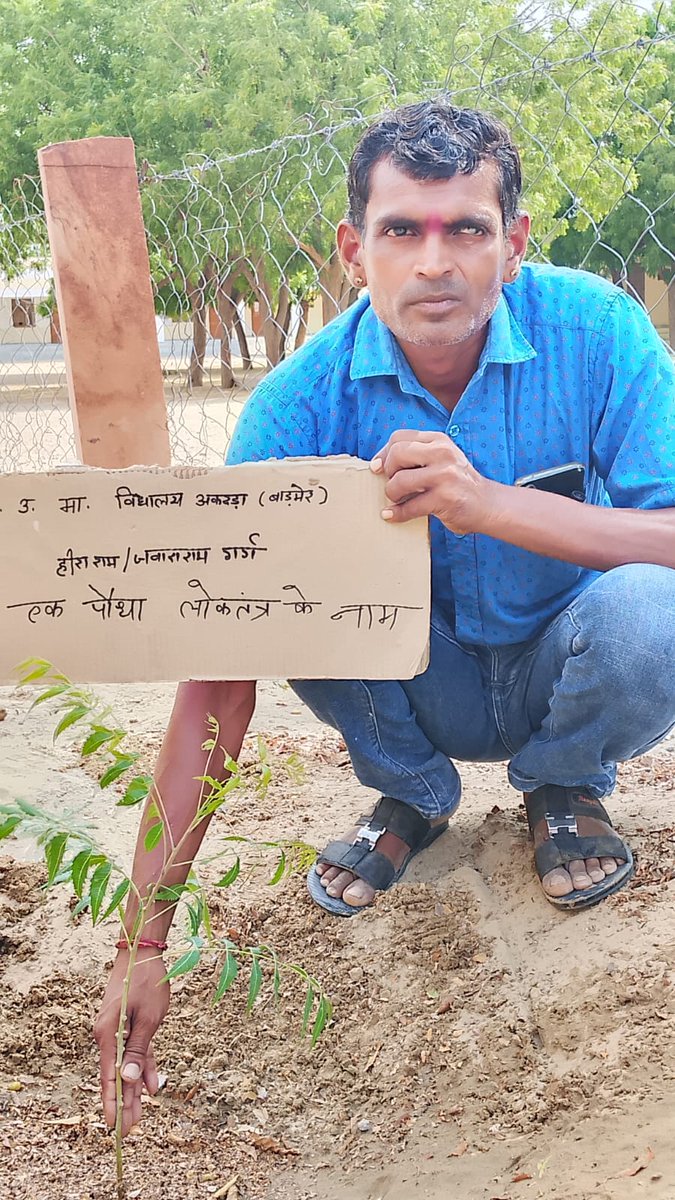 . उ. मा. विद्यालय अकदड़ा (बाड़मेर)
हीरा राम/जवारा राम गर्ग
एक पौधा लोकतंत्र के नाम